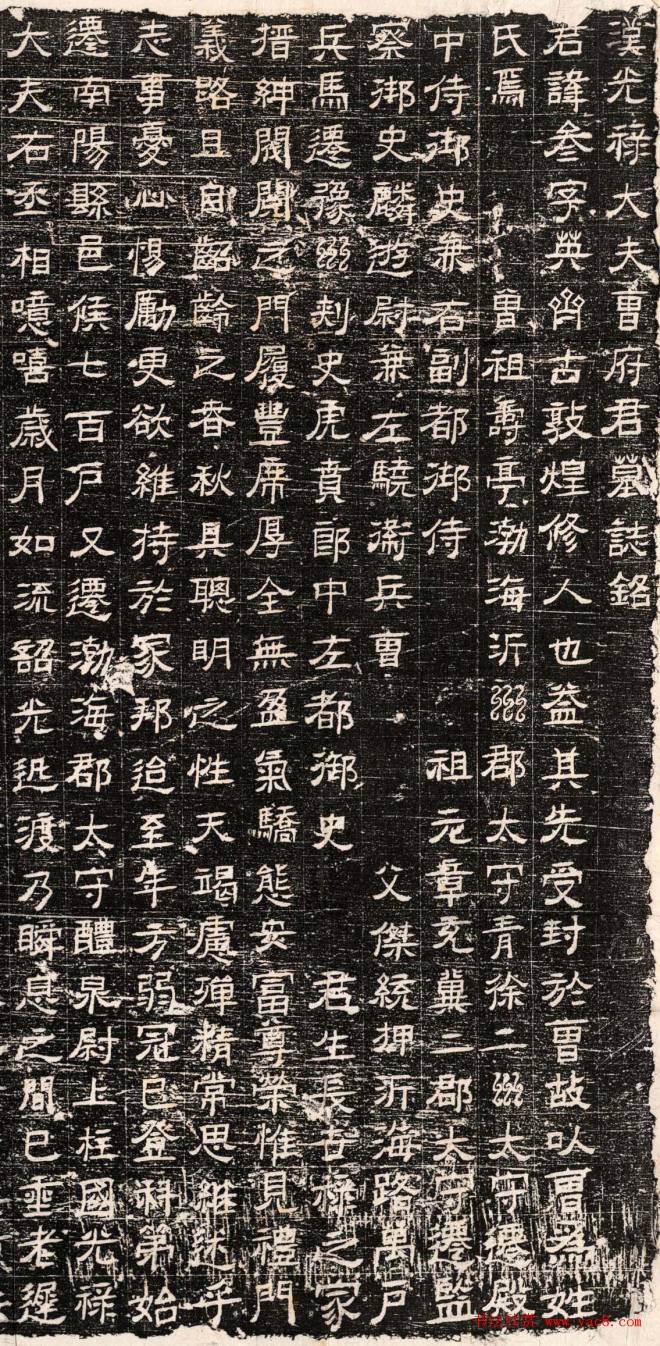 漢光祿大夫曹府君墓誌銘
君諱叅字英齊古敦煌修人也益其先受封於曹故以曹為姓
氏焉 曾祖壽亭渤海沂州郡太守青徐二州太守遷殿
中侍御史兼右副都御侍 祖元章充冀二郡太守遷監
察御史麟遊尉兼左驍衞兵曹 父傑統押沂海路萬戶
兵馬遷豫州刾史虎賁郎中左都御史 君生長吉祿之家
搢紳閥閱之門履豐席厚全無盈氣驕態安富尊榮惟見禮門
義路且自齠齡之春秋具聰明之性天竭慮殫精常思維述乎
志事憂心惕勵更欲維持於家邦迨至年方弱冠已登科第始
遷南陽縣邑候七百戶又遷渤海郡太守醴泉尉上柱國光祿
大夫右丞相噫嘻歲月如流韶光迅渡乃瞬息之間已至老遲
书法欣赏 www.yac8.com